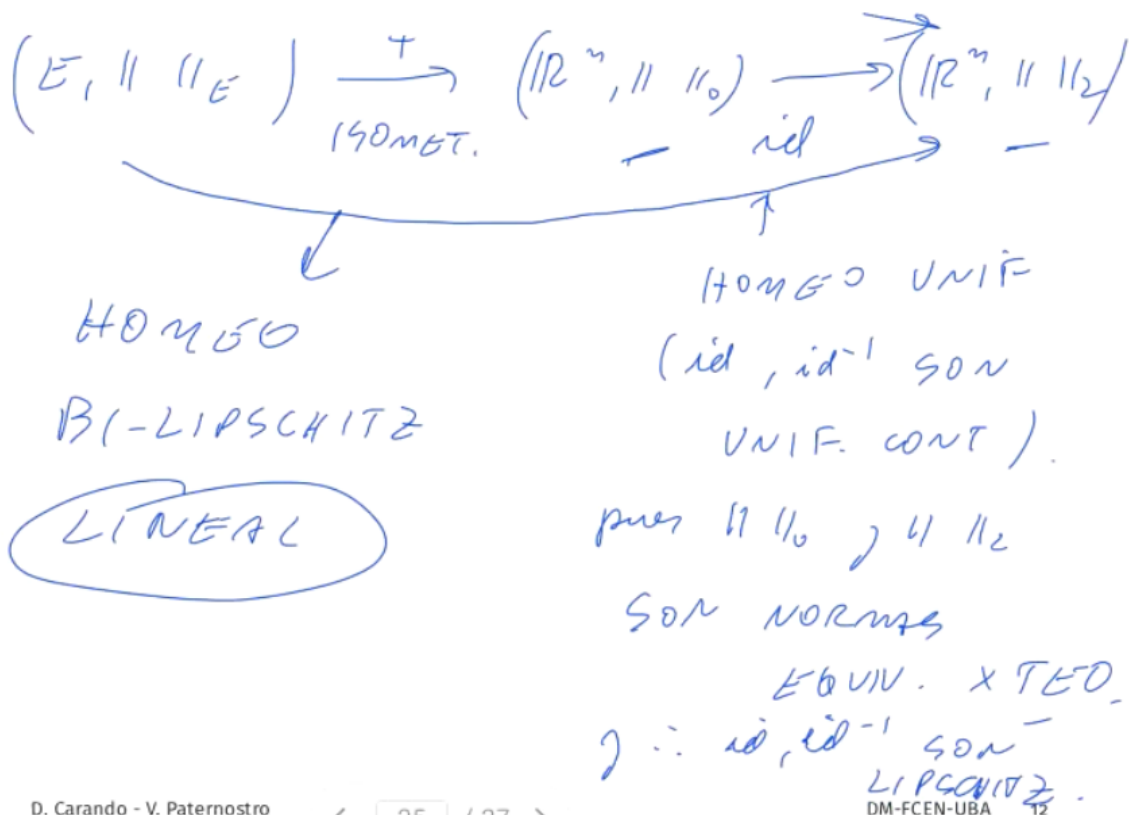 (E, || ||_E) T→ (ℝⁿ, || ||₀) → (ℝⁿ, || ||₂)
ISOMET. id
HOMEO
BI-LIPSCHITZ
LINEAL
HOMEO UNIF
(id, id⁻¹ SON
UNIF. CONT).
pues || ||₀ y || ||₂
SON NORMAS
EQUIV. X TEO.
y ∴ id, id⁻¹ SON
LIPSCHITZ.
D. Carando - V. Paternostro < 25 / 27 > DM-FCEN-UBA 12